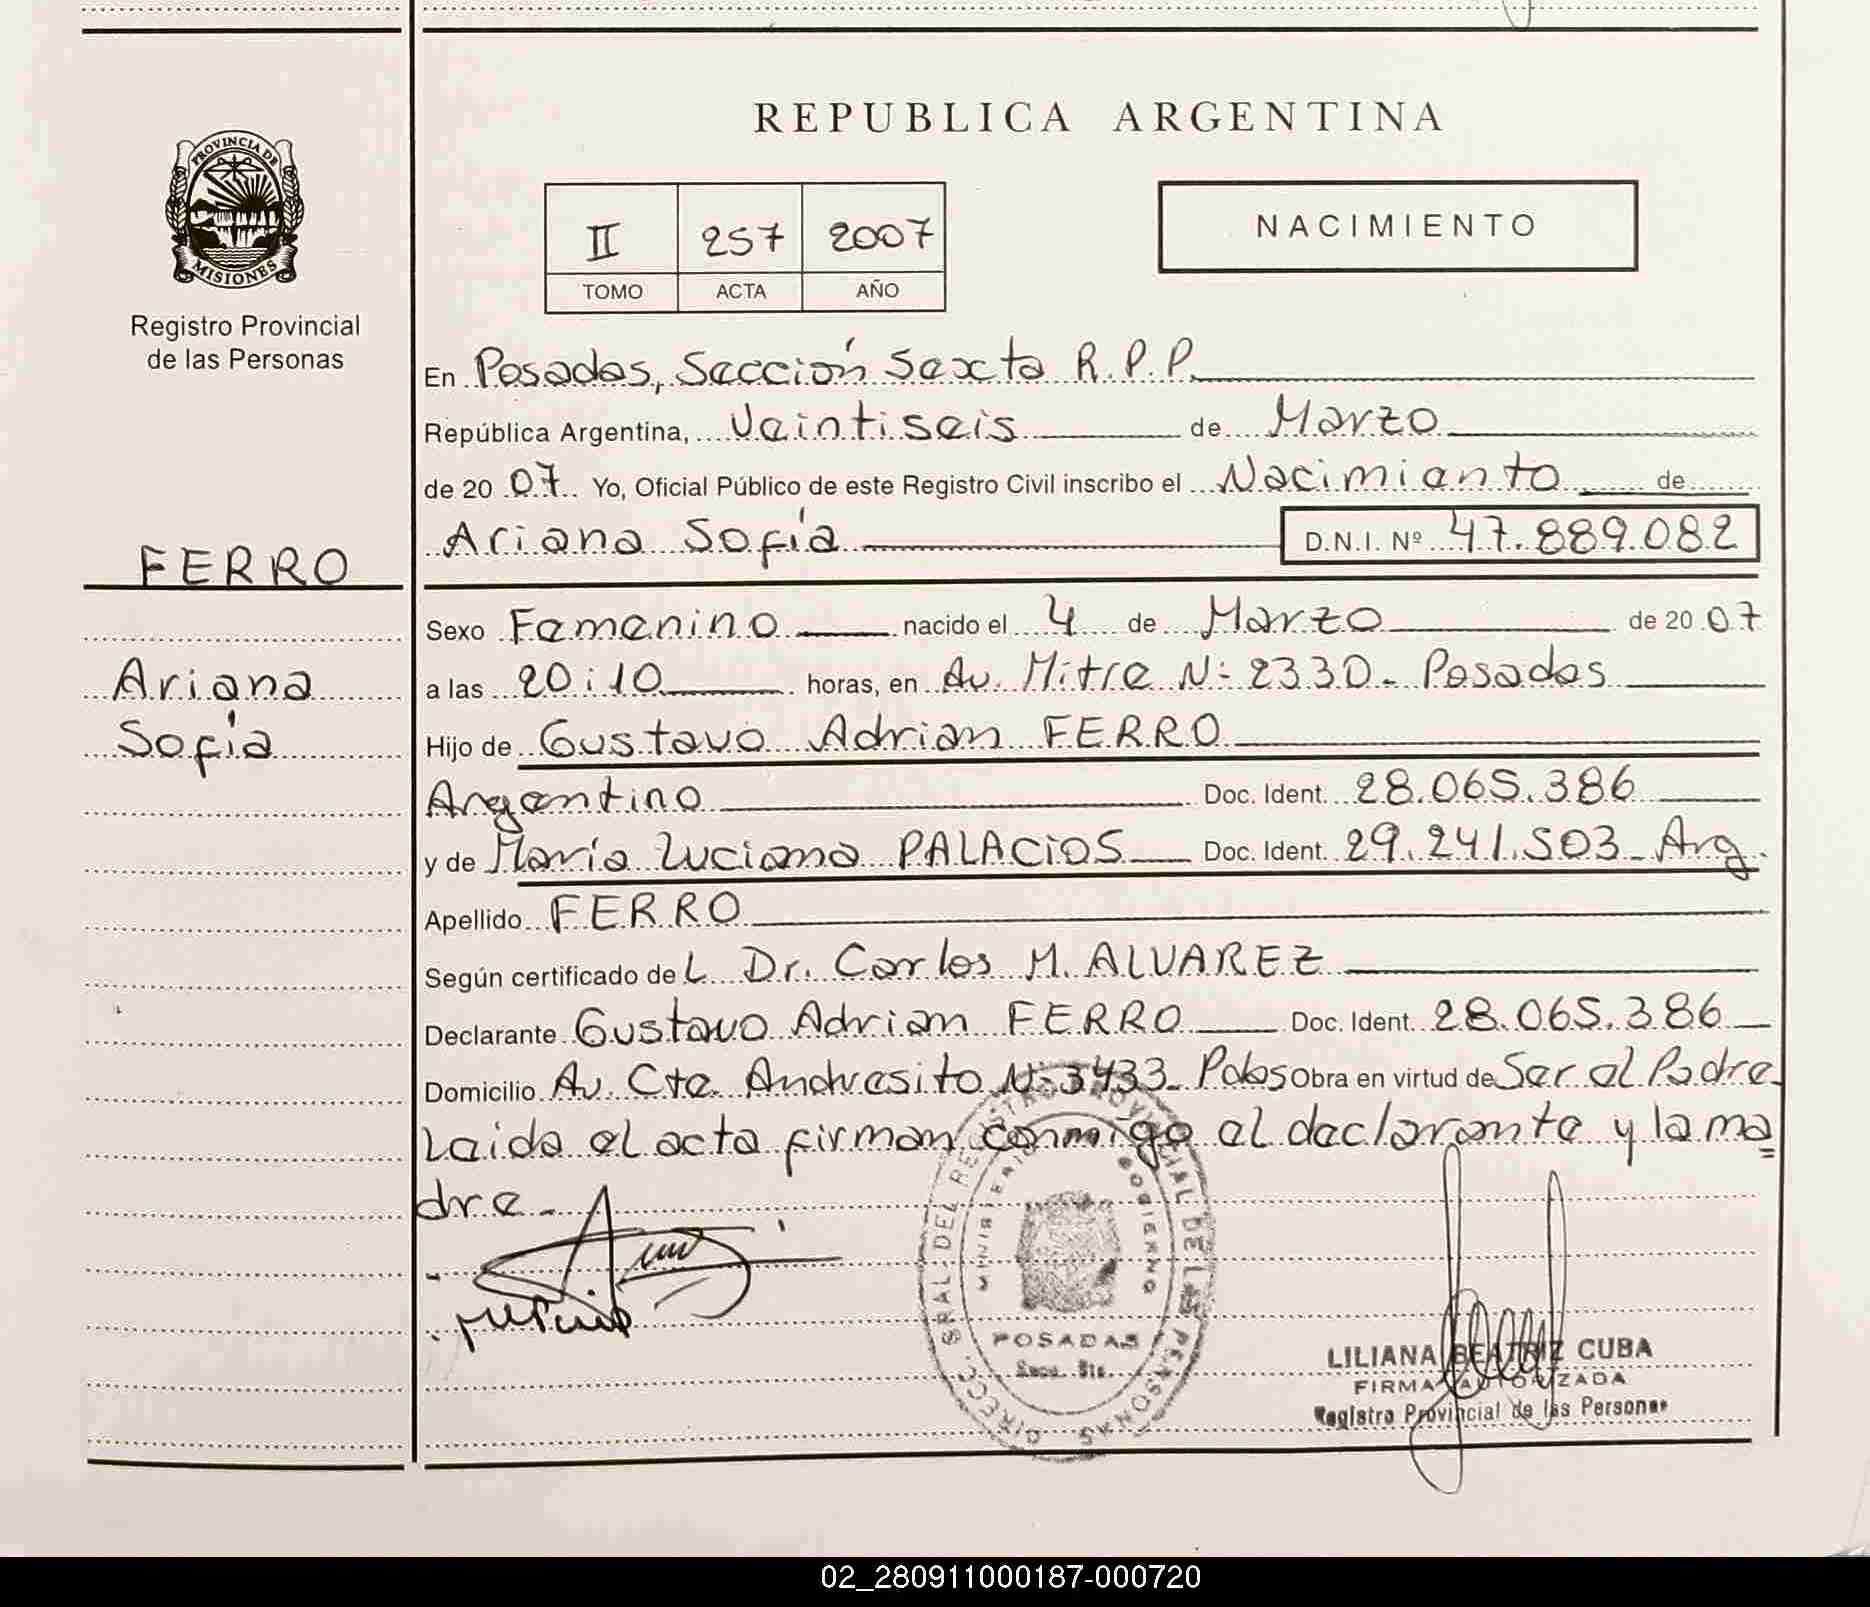 REPUBLICA ARGENTINA
PROVINCIA DE
MISIONES
Registro Provincial
de las Personas
II 257 2007
TOMO ACTA AÑO
NACIMIENTO
En Posadas, Sección Sexta R.P.P.
República Argentina, Veintiseis de Marzo
de 20 07 Yo, Oficial Público de este Registro Civil inscribo el Nacimiento de
Ariana Sofía D.N.I. Nº 47.889.082
FERRO
Ariana
Sofía
Sexo Femenino nacido el 4 de Marzo de 20 07
a las 20:10 horas, en Av. Mitre N: 2330- Posadas
Hijo de Gustavo Adrian FERRO
Argentino Doc. Ident. 28.065.386
y de María Luciana PALACIOS Doc. Ident. 29.241.503- Arg.
Apellido FERRO
Según certificado del Dr. Carlos M. ALVAREZ
Declarante Gustavo Adrian FERRO Doc. Ident. 28.065.386
Domicilio Av. Cte. Andresito N: 3433- Pdas Obra en virtud de Ser el Padre-
Leida el acta firman conmigo el declarante y la ma
dre-
DIRECC. GRAL. DEL REGISTRO PROVINCIAL DE LAS PERSONAS
MINISTERIO GOBIERNO
POSADAS
Secc. 6ta.
LILIANA BEATRIZ CUBA
FIRMA AUTORIZADA
Registro Provincial de las Personas
02_280911000187-000720